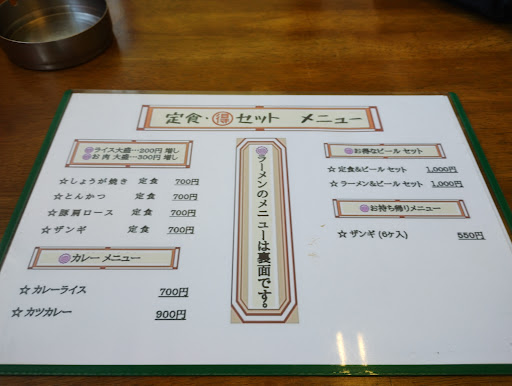 定食・得セット メニュー
ライス大盛…200円 増し
お肉 大盛…300円 増し
☆しょうが焼き 定食 700円
☆とんかつ 定食 700円
☆豚肩ロース 定食 700円
☆ザンギ 定食 700円
カレー メニュー
☆カレーライス 700円
☆カツカレー 900円
ラーメンのメニューは裏面です。
お得なビール セット
☆定食&ビール セット 1,000円
☆ラーメン&ビール セット 1,000円
お持ち帰りメニュー
☆ザンギ (6ヶ入) 550円